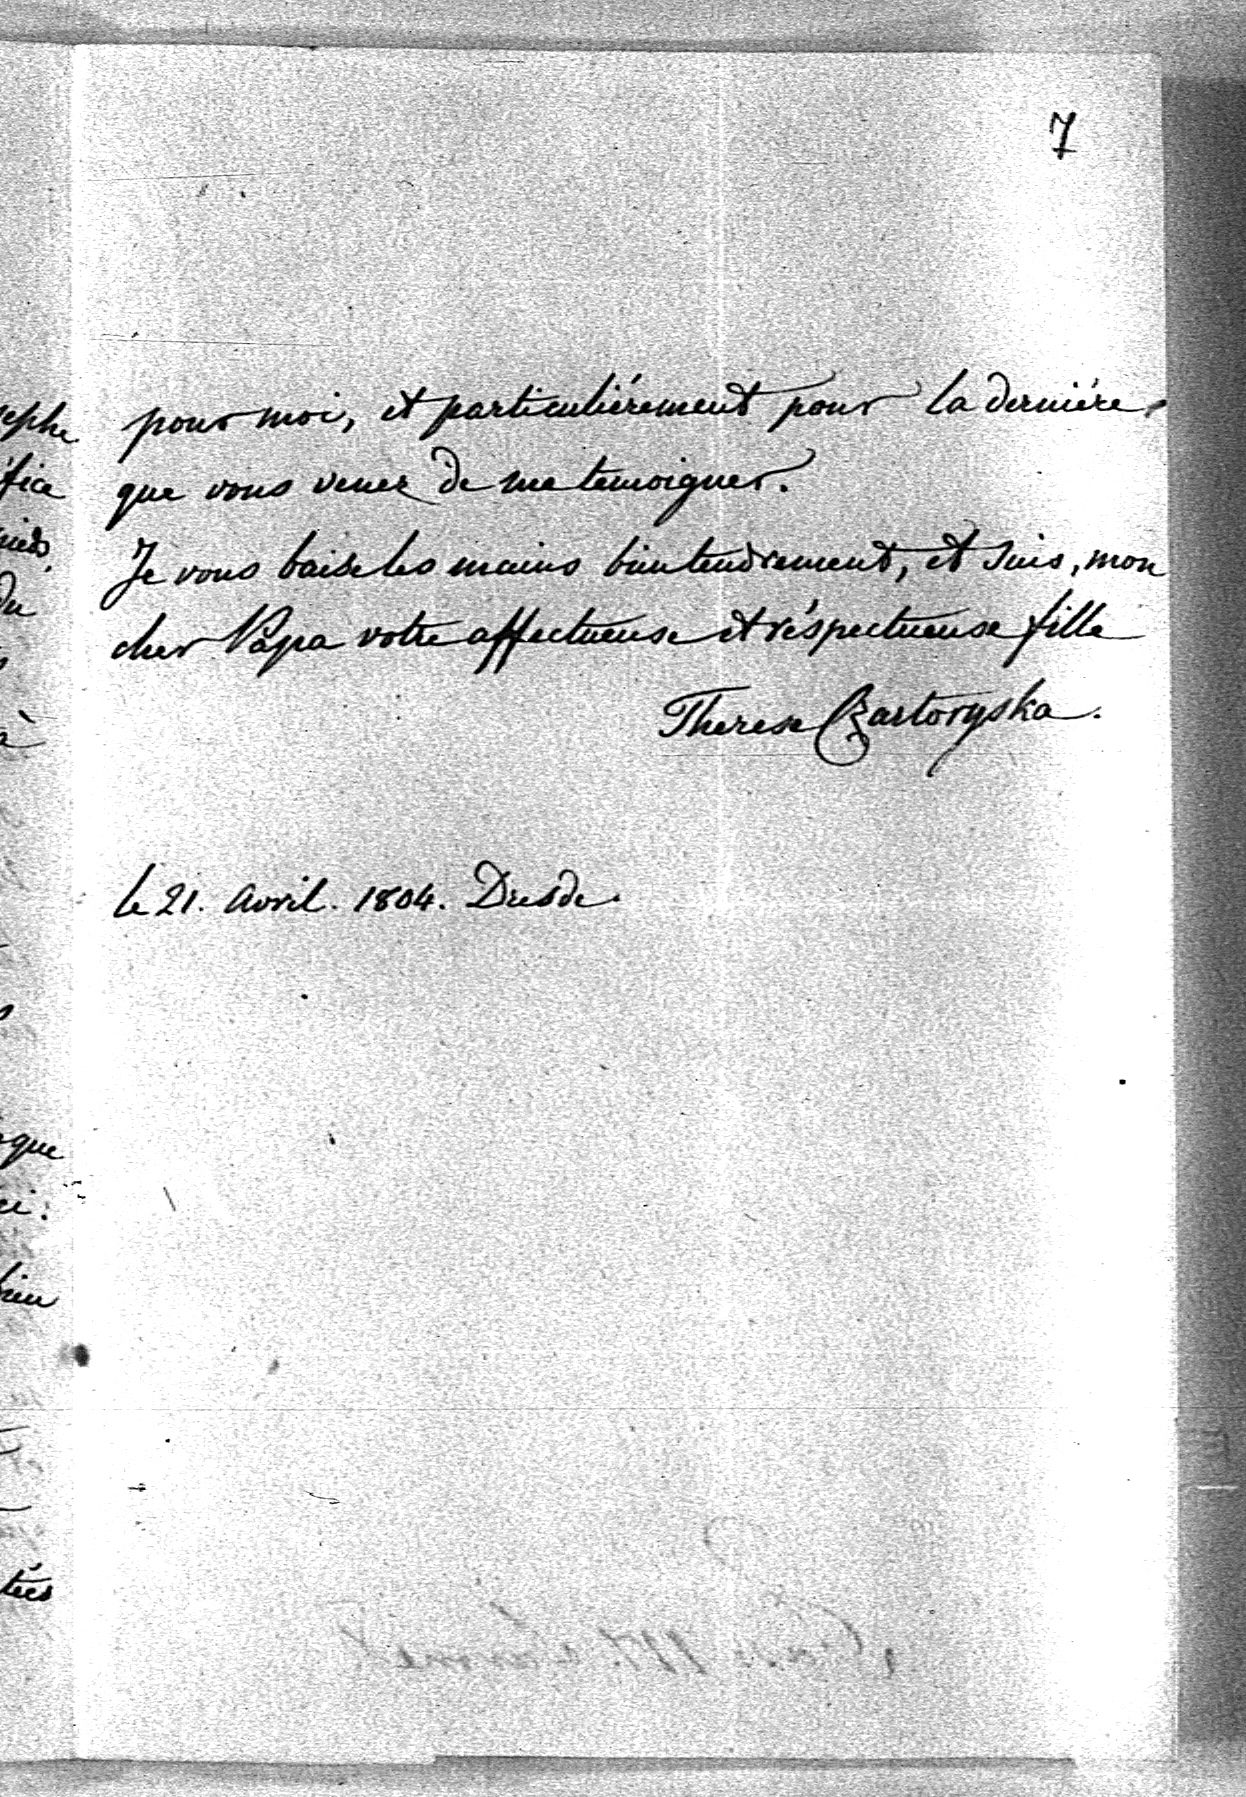 7
pour moi, et particuliérement pour la derniére
que vous venez de me temoigner.
Je vous baise les mains bien tendrement, et suis, mon
cher Papa votre affectueuse et réspectueuse fille
Therese Czartoryska.
le 21. Avril. 1804. Dresde.